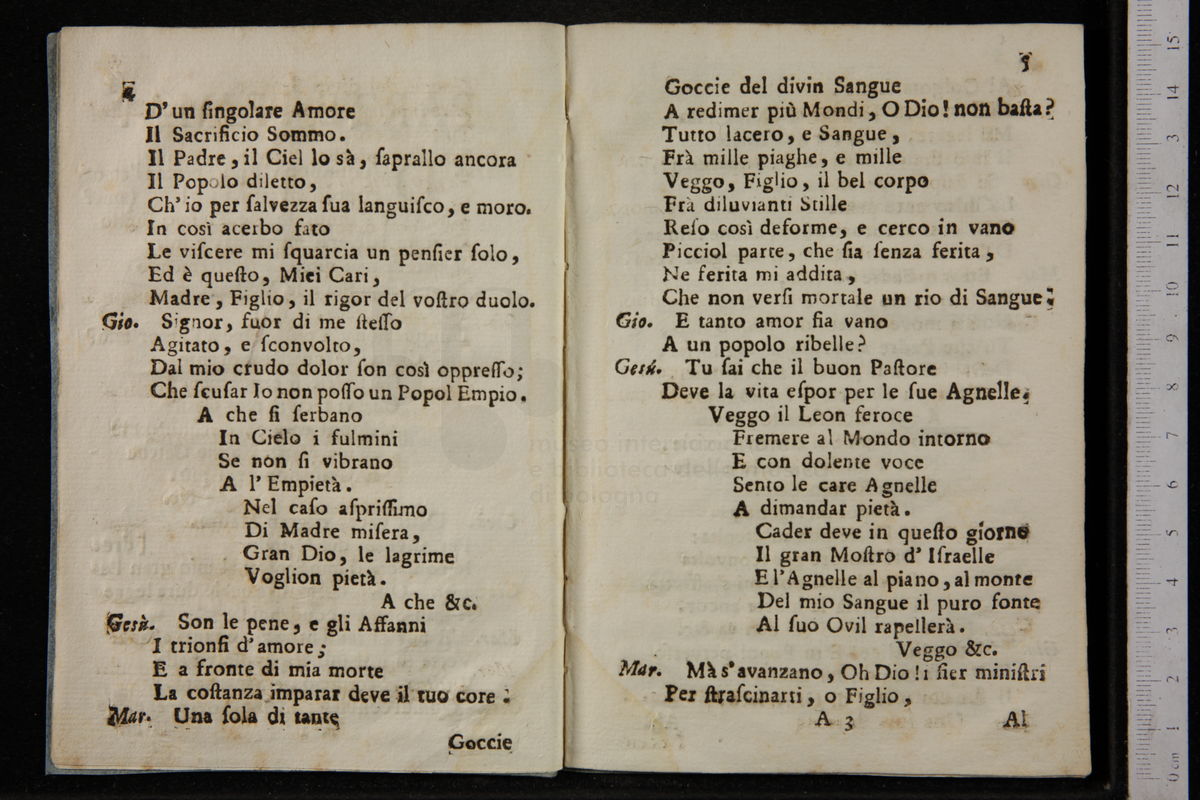 4
D'un ſingolare Amore
Il Sacrificio Sommo.
Il Padre, il Ciel lo sà, ſaprallo ancora
Il Popolo diletto,
Ch'io per ſalvezza ſua languiſco, e moro.
In così acerbo fato
Le viſcere mi ſquarcia un penſier ſolo,
Ed è queſto, Miei Cari,
Madre, Figlio, il rigor del voſtro duolo.
Gio. Signor, fuor di me ſteſſo
Agitato, e ſconvolto,
Dal mio crudo dolor ſon così oppreſſo;
Che ſcuſar Io non poſſo un Popol Empio.
A che ſi ſerbano
In Cielo i fulmini
Se non ſi vibrano
A l'Empietà.
Nel caſo aſpriſſimo
Di Madre miſera,
Gran Dio, le lagrime
Voglion pietà.
A che &c.
Gesù. Son le pene, e gli Affanni
I trionfi d'amore;
E a fronte di mia morte
La coſtanza imparar deve il tuo core.
Mar. Una ſola di tante
Goccie
5
Goccie del divin Sangue
A redimer più Mondi, O Dio! non baſta?
Tutto lacero, e Sangue,
Frà mille piaghe, e mille
Veggo, Figlio, il bel corpo
Frà diluvianti Stille
Reſo così deforme, e cerco in vano
Picciol parte, che ſia ſenza ferita,
Ne ferita mi addita,
Che non verſi mortale un rio di Sangue;
Gio. E tanto amor ſia vano
A un popolo ribelle?
Gesú. Tu ſai che il buon Paſtore
Deve la vita eſpor per le ſue Agnelle.
Veggo il Leon feroce
Fremere al Mondo intorno
E con dolente voce
Sento le care Agnelle
A dimandar pietà.
Cader deve in queſto giorno
Il gran Moſtro d'Iſraelle
E l'Agnelle al piano, al monte
Del mio Sangue il puro fonte
Al ſuo Ovil rapellerà.
Veggo &c.
Mar. Mà s'avanzano, Oh Dio! i fier miniſtri
Per ſtraſcinarti, o Figlio,
A 3
Al
museo internazionale
e biblioteca della musica
di bologna
15
14
3
12
11
10
9
8
7
6
5
4
3
2
1
0 cm